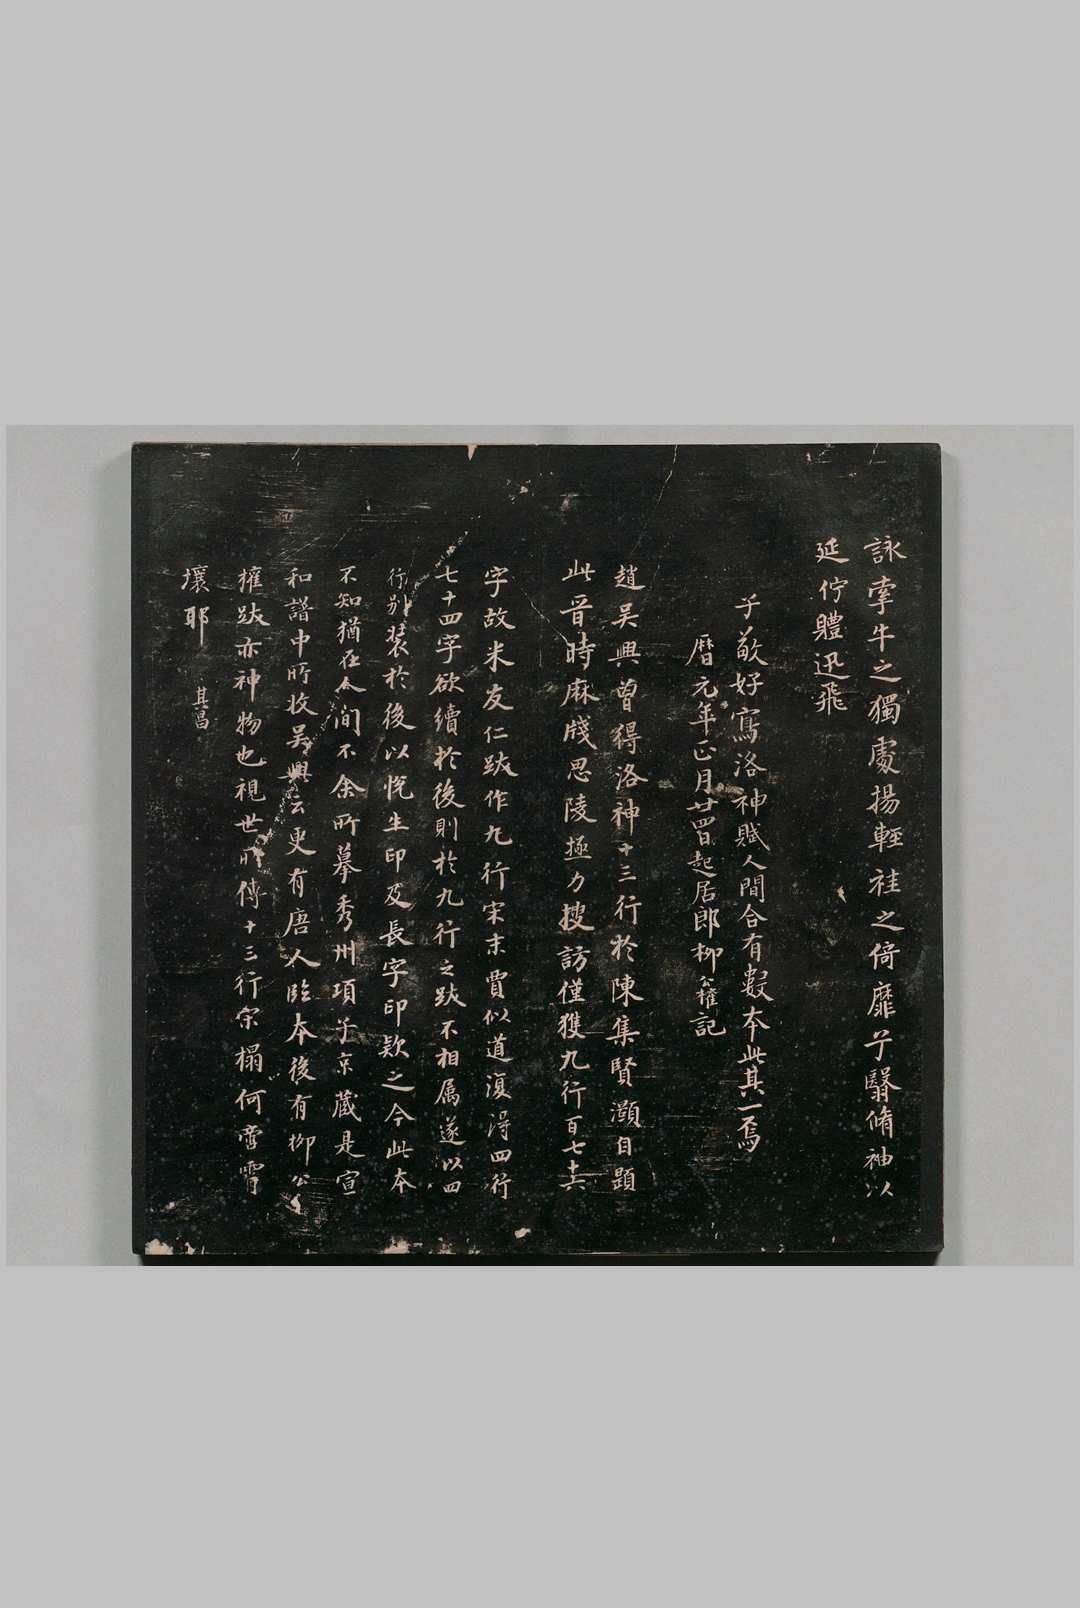 詠牽牛之獨處揚輕袿之倚靡兮翳脩袖以
延佇體迅飛
子敬好寫洛神賦人間合有數本此其一焉
曆元年正月廿四日起居郎柳公權記
趙吳興曾得洛神十三行於陳集賢灝自題
此晉時麻牋思陵極力搜訪僅獲九行百七十六
字故米友仁跋作九行宋末賈似道復得四行
七十四字欲續於後則於九行之跋不相属遂以四
行別裝於後以悅生印及長字印款之今此本
不知猶在人間不余所摹秀州項子京藏是宣
和譜中所收吳興云更有唐人臨本後有柳公
權跋亦神物也視世所傳十三行宗榻何啻霄
壤耶 其昌